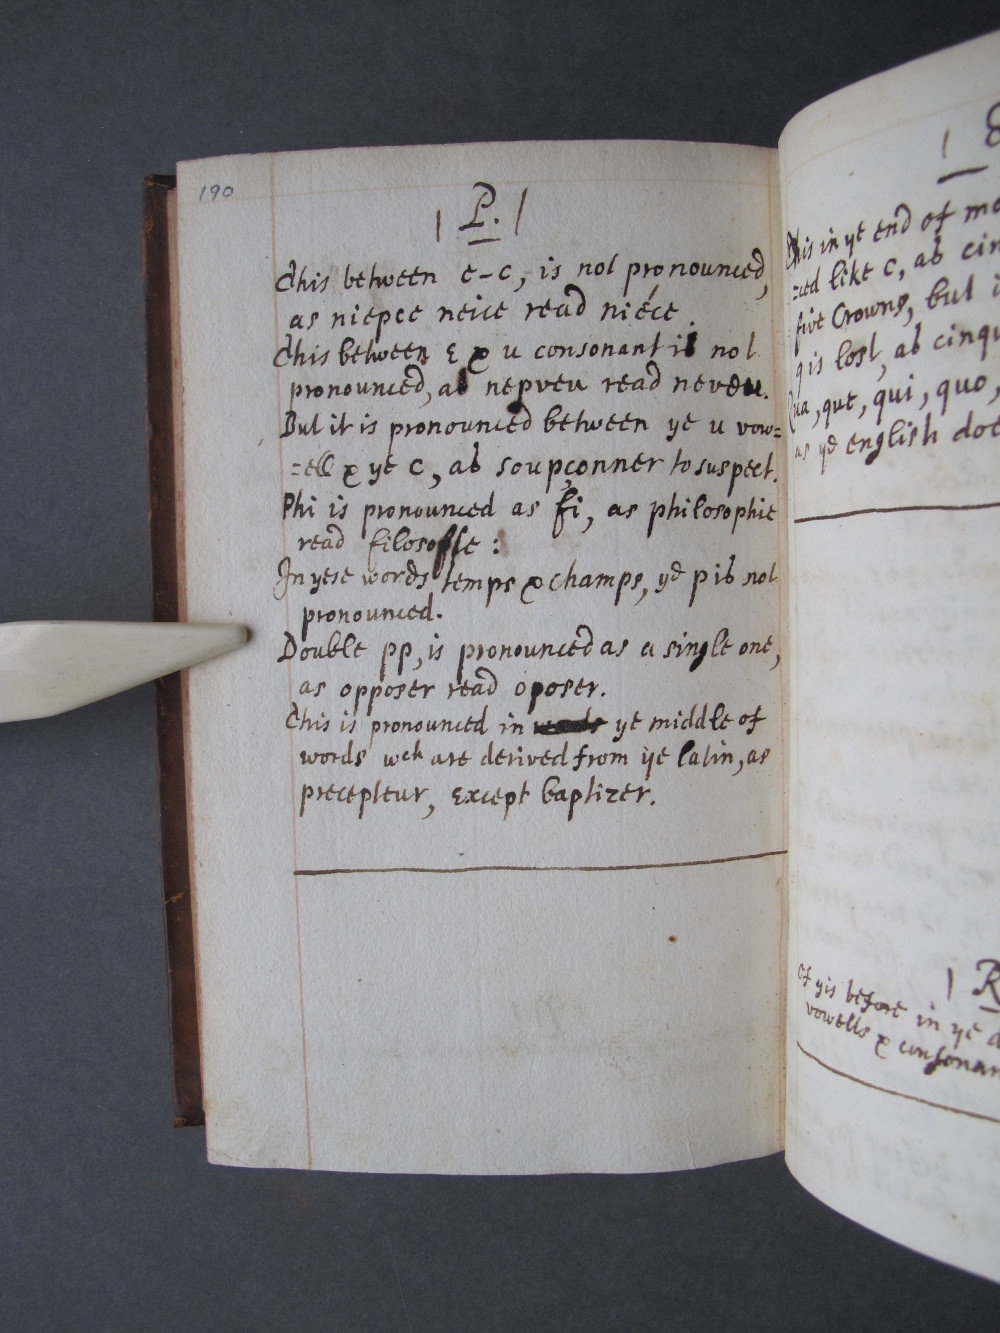 190
| P. |
This between e-c, is not pronounced,
as niepce neice read niéce.
This between E & u consonant is not
pronounced, as nepveu read neveu.
But it is pronounced between ye u vow=
=ell & ye c, as soupçonner to suspect.
Phi is pronounced as fi, as philosophie
read filosofie:
In yese words temps & champs, ye p is not
pronounced.
Double pp, is pronounced as a single one,
as opposer read oposer.
This is pronounced in ye middle of
words wch are derived from ye latin, as
precepteur, Except baptizer.
This in ye end of
=ced like c, as
five Crowns, but
q is lost, as cinq
Qua, que, qui, quo,
as ye english
| R
Of yis before in ye
vowells & consonan